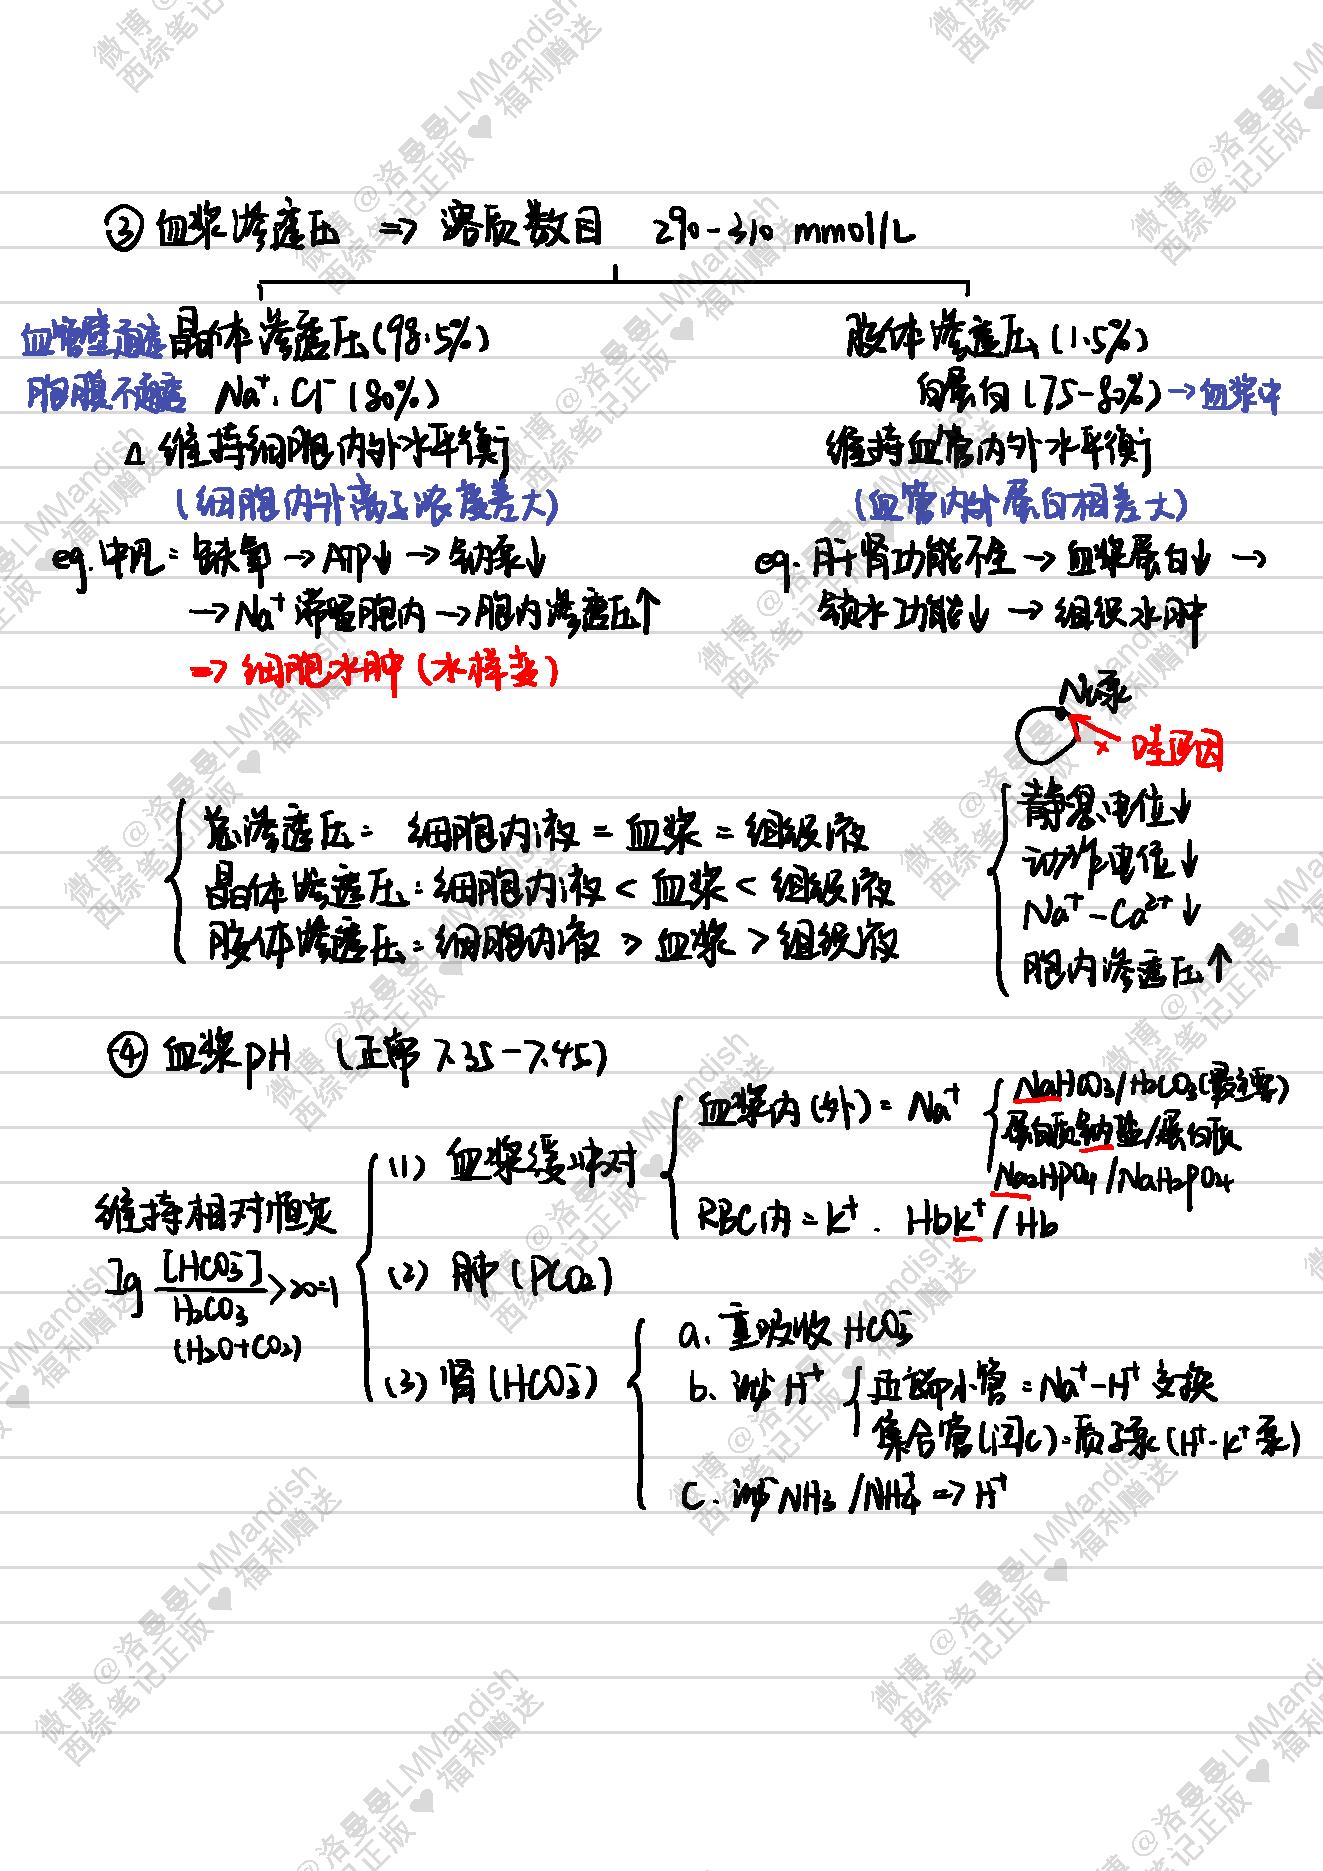 ③ 血浆渗透压 => 溶质数目 290-310 mmol/L
血管壁通透 晶体渗透压(98.5%)
胞膜不通透 Na⁺、Cl⁻(80%)
△ 维持细胞内外水平衡
(细胞内外离子浓度差大)
eg. 中风: 缺氧→ATP↓→钠泵↓
→Na⁺滞留胞内→胞内渗透压↑
=> 细胞水肿(水样变)
胶体渗透压(1.5%)
白蛋白(75-80%)→血浆中
维持血管内外水平衡
(血管内外蛋白相差大)
eg. 肝肾功能不全→血浆蛋白↓→
锁水功能↓→组织水肿
Na泵
× 哇巴因
静息电位↓
动作电位↓
Na⁺-Ca²⁺↓
胞内渗透压↑
总渗透压: 细胞内液=血浆=组织液
晶体渗透压: 细胞内液<血浆<组织液
胶体渗透压: 细胞内液>血浆>组织液
④ 血浆pH (正常7.35-7.45)
维持相对恒定
lg [HCO₃⁻]
H₂CO₃
>20:1
(H₂O+CO₂)
(1) 血浆缓冲对
血浆内(外): Na⁺
NaHCO₃/H₂CO₃(最主要)
蛋白质钠盐/蛋白质
Na₂HPO₄/NaH₂PO₄
RBC内: K⁺. HbK⁺/Hb
(2) 肺(PCO₂)
(3) 肾(HCO₃⁻)
a. 重吸收HCO₃⁻
b. 泌H⁺
近端小管: Na⁺-H⁺交换
集合管(闰C): 质子泵(H⁺-K⁺泵)
c. 泌NH₃/NH₄⁺ => H⁺
微博@洛曼曼LMMandish
西综笔记正版♥福利赠送